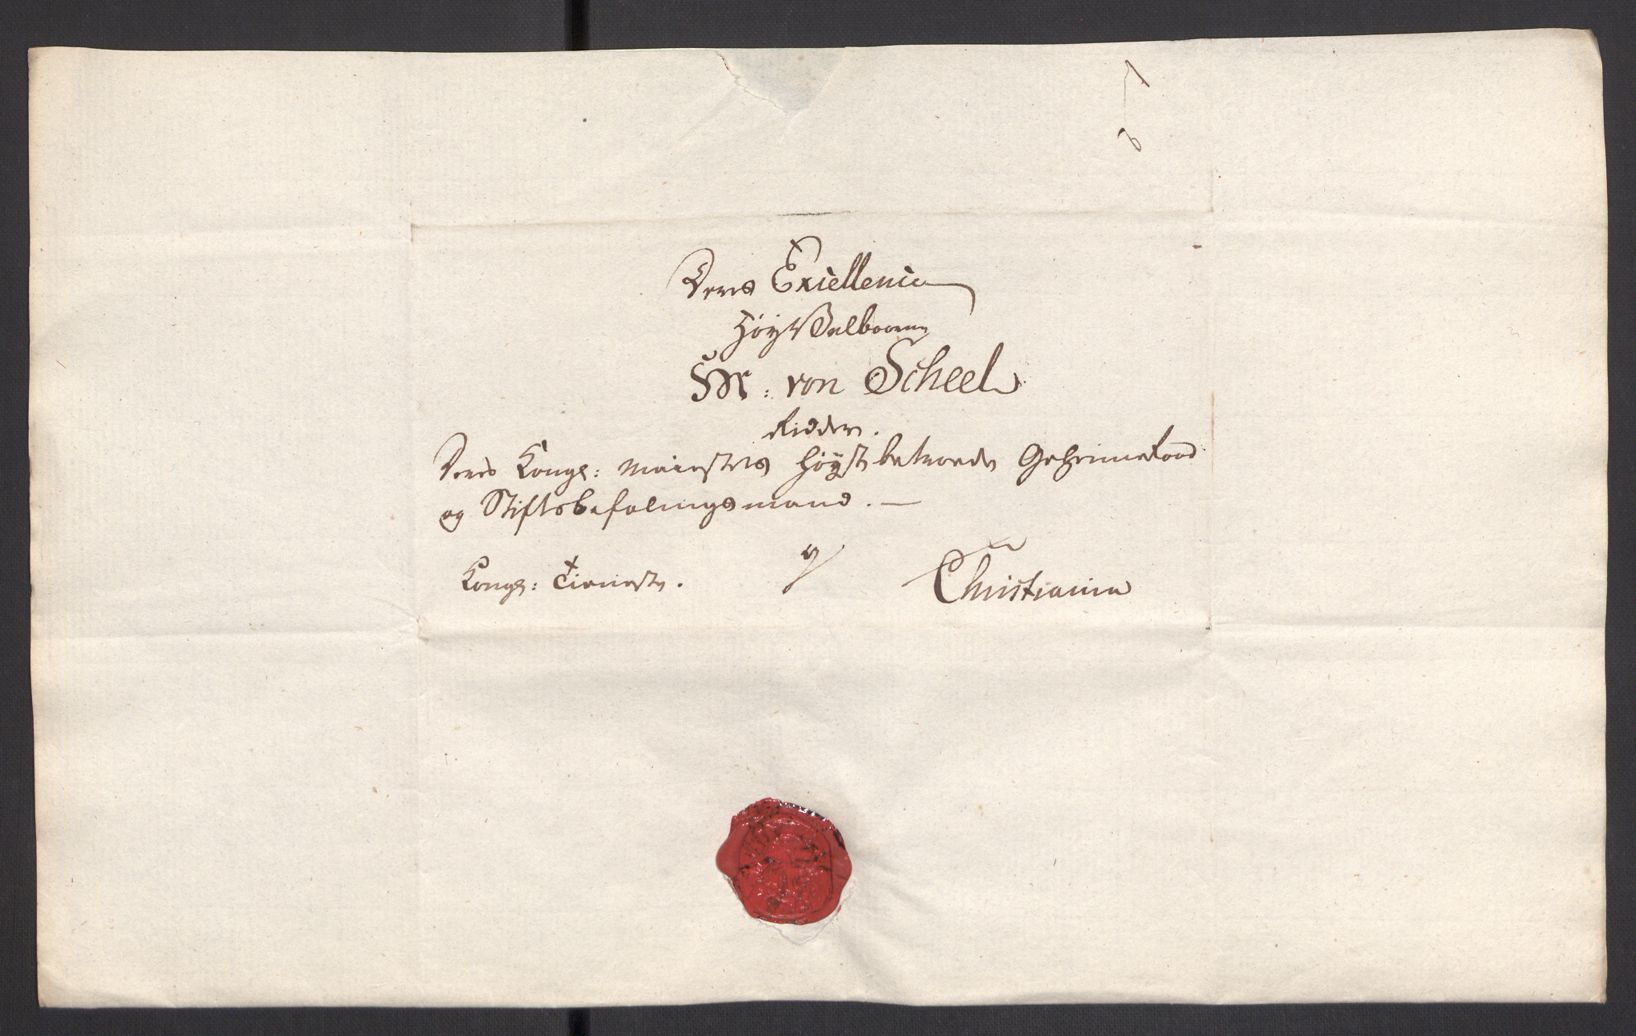 Deres Excellence
HøyVelbaarne
Hr: von Scheel
Ridder.
Deres Kongl: Maiestets Høystbetroede Geheimeraad
og Stiftsbefalingsmand. —
Kongl: Tieniste. Christiania